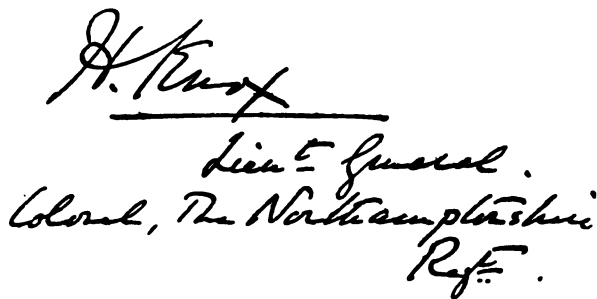 H. Knox
Lieut General.
Colonel, The Northamptonshire
Regt.